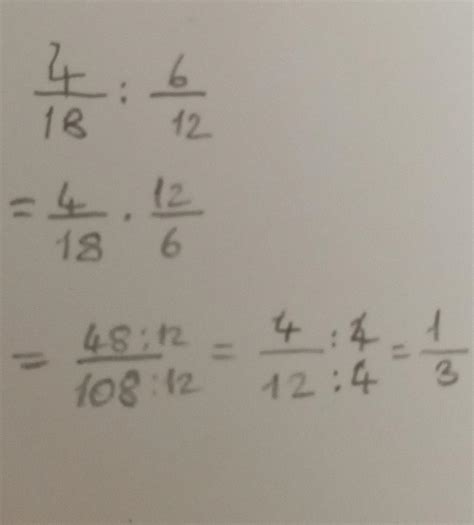 4/18 : 6/12
= 4/18 · 12/6
= 48:12/108:12 = 4:4/12:4 = 1/3